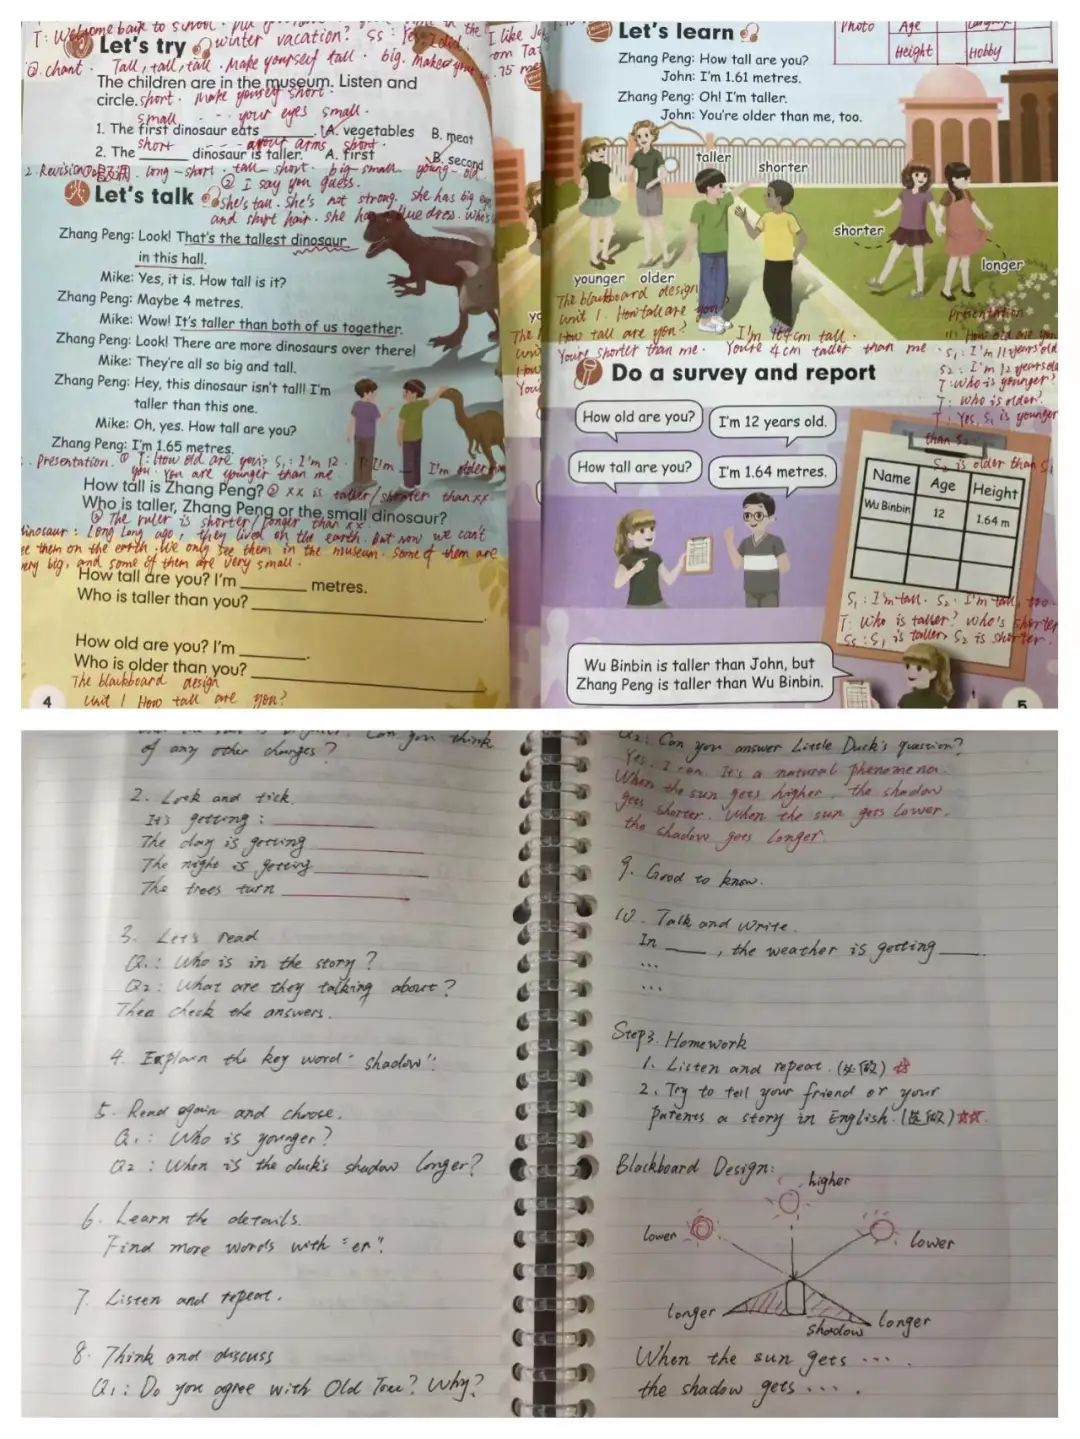 T: Welcome back to school.
winter vacation? Ss: Yes, I did.
Let's try
② chant. Tall, tall, tall. Make yourself tall. big. Make your
The children are in the museum. Listen and
circle.
short. Make yourself short.
small - - - your eyes small.
1. The first dinosaur eats ______. A. vegetables B. meat
short - - - your arms short.
2. The ______ dinosaur is taller. A. first B. second
2. Revision long - short. tall - short. big - small. young - old
② I say you guess.
Let's talk
she's tall. she's not strong. she has big eyes
and short hair. she has blue dress. Who's
Zhang Peng: Look! That's the tallest dinosaur
in this hall.
Mike: Yes, it is. How tall is it?
Zhang Peng: Maybe 4 metres.
Mike: Wow! It's taller than both of us together.
Zhang Peng: Look! There are more dinosaurs over there!
Mike: They're all so big and tall.
Zhang Peng: Hey, this dinosaur isn't tall! I'm
taller than this one.
Mike: Oh, yes. How tall are you?
Zhang Peng: I'm 1.65 metres.
Presentation. ① T: How old are you? S1: I'm 12. T: I'm __ I'm older than
you. You are younger than me
How tall is Zhang Peng?
② xx is taller/shorter than xx.
Who is taller, Zhang Peng or the small dinosaur?
③ The ruler is shorter/longer than xx
dinosaur: Long long ago, they lived on the earth. But now we can't
see them on the earth. We only see them in the museum. Some of them are
very big, and some of them are very small.
How tall are you? I'm ______ metres.
Who is taller than you? ______.
How old are you? I'm ______.
Who is older than you? ______.
The blackboard design
Unit 1 How tall are you?
4
Let's learn
Photo Age
Height Hobby
Zhang Peng: How tall are you?
John: I'm 1.61 metres.
Zhang Peng: Oh! I'm taller.
John: You're older than me, too.
taller
shorter
shorter
longer
younger older
The blackboard design
Unit 1. How tall are you?
How tall are you? I'm 164cm tall.
You're shorter than me. You're 4cm taller than me.
Presentation
How old are you
S1: I'm 11 years old
S2: I'm 12 years old
T: Who is younger?
T: Who is older?
T: Yes, S1 is younger
than S2
S2 is older than S1
Do a survey and report
How old are you?
I'm 12 years old.
How tall are you?
I'm 1.64 metres.
Name Age Height
Wu Binbin 12 1.64 m
S1: I'm tall. S2: I'm tall, too.
T: Who is taller? Who's shorter
Ss: S1 is taller, S2 is shorter.
Wu Binbin is taller than John, but
Zhang Peng is taller than Wu Binbin.
5
Can you think
of any other changes?
2. Look and tick.
It's getting: ______
The day is getting ______
The night is getting ______
The trees turn ______
3. Let's read
Q1: Who is in the story?
Q2: What are they talking about?
Then check the answers.
4. Explain the key word "shadow".
5. Read again and choose.
Q1: Who is younger?
Q2: When is the duck's shadow longer?
6. Learn the details.
Find more words with "er".
7. Listen and repeat.
8. Think and discuss
Q1: Do you agree with Old Tree? Why?
Q2: Can you answer Little Duck's question?
Yes. I can. It's a natural phenomena.
When the sun gets higher, the shadow
gets shorter. When the sun gets lower.
the shadow goes longer.
9. Good to know.
10. Talk and write.
In ____, the weather is getting ____.
...
...
Step3. Homework
1. Listen and repeat. (必做) ☆
2. Try to tell your friend or your
parents a story in English. (选做) ☆☆.
Blackboard Design:
higher
lower
lower
longer
shadow
longer
When the sun gets ....
the shadow gets ....